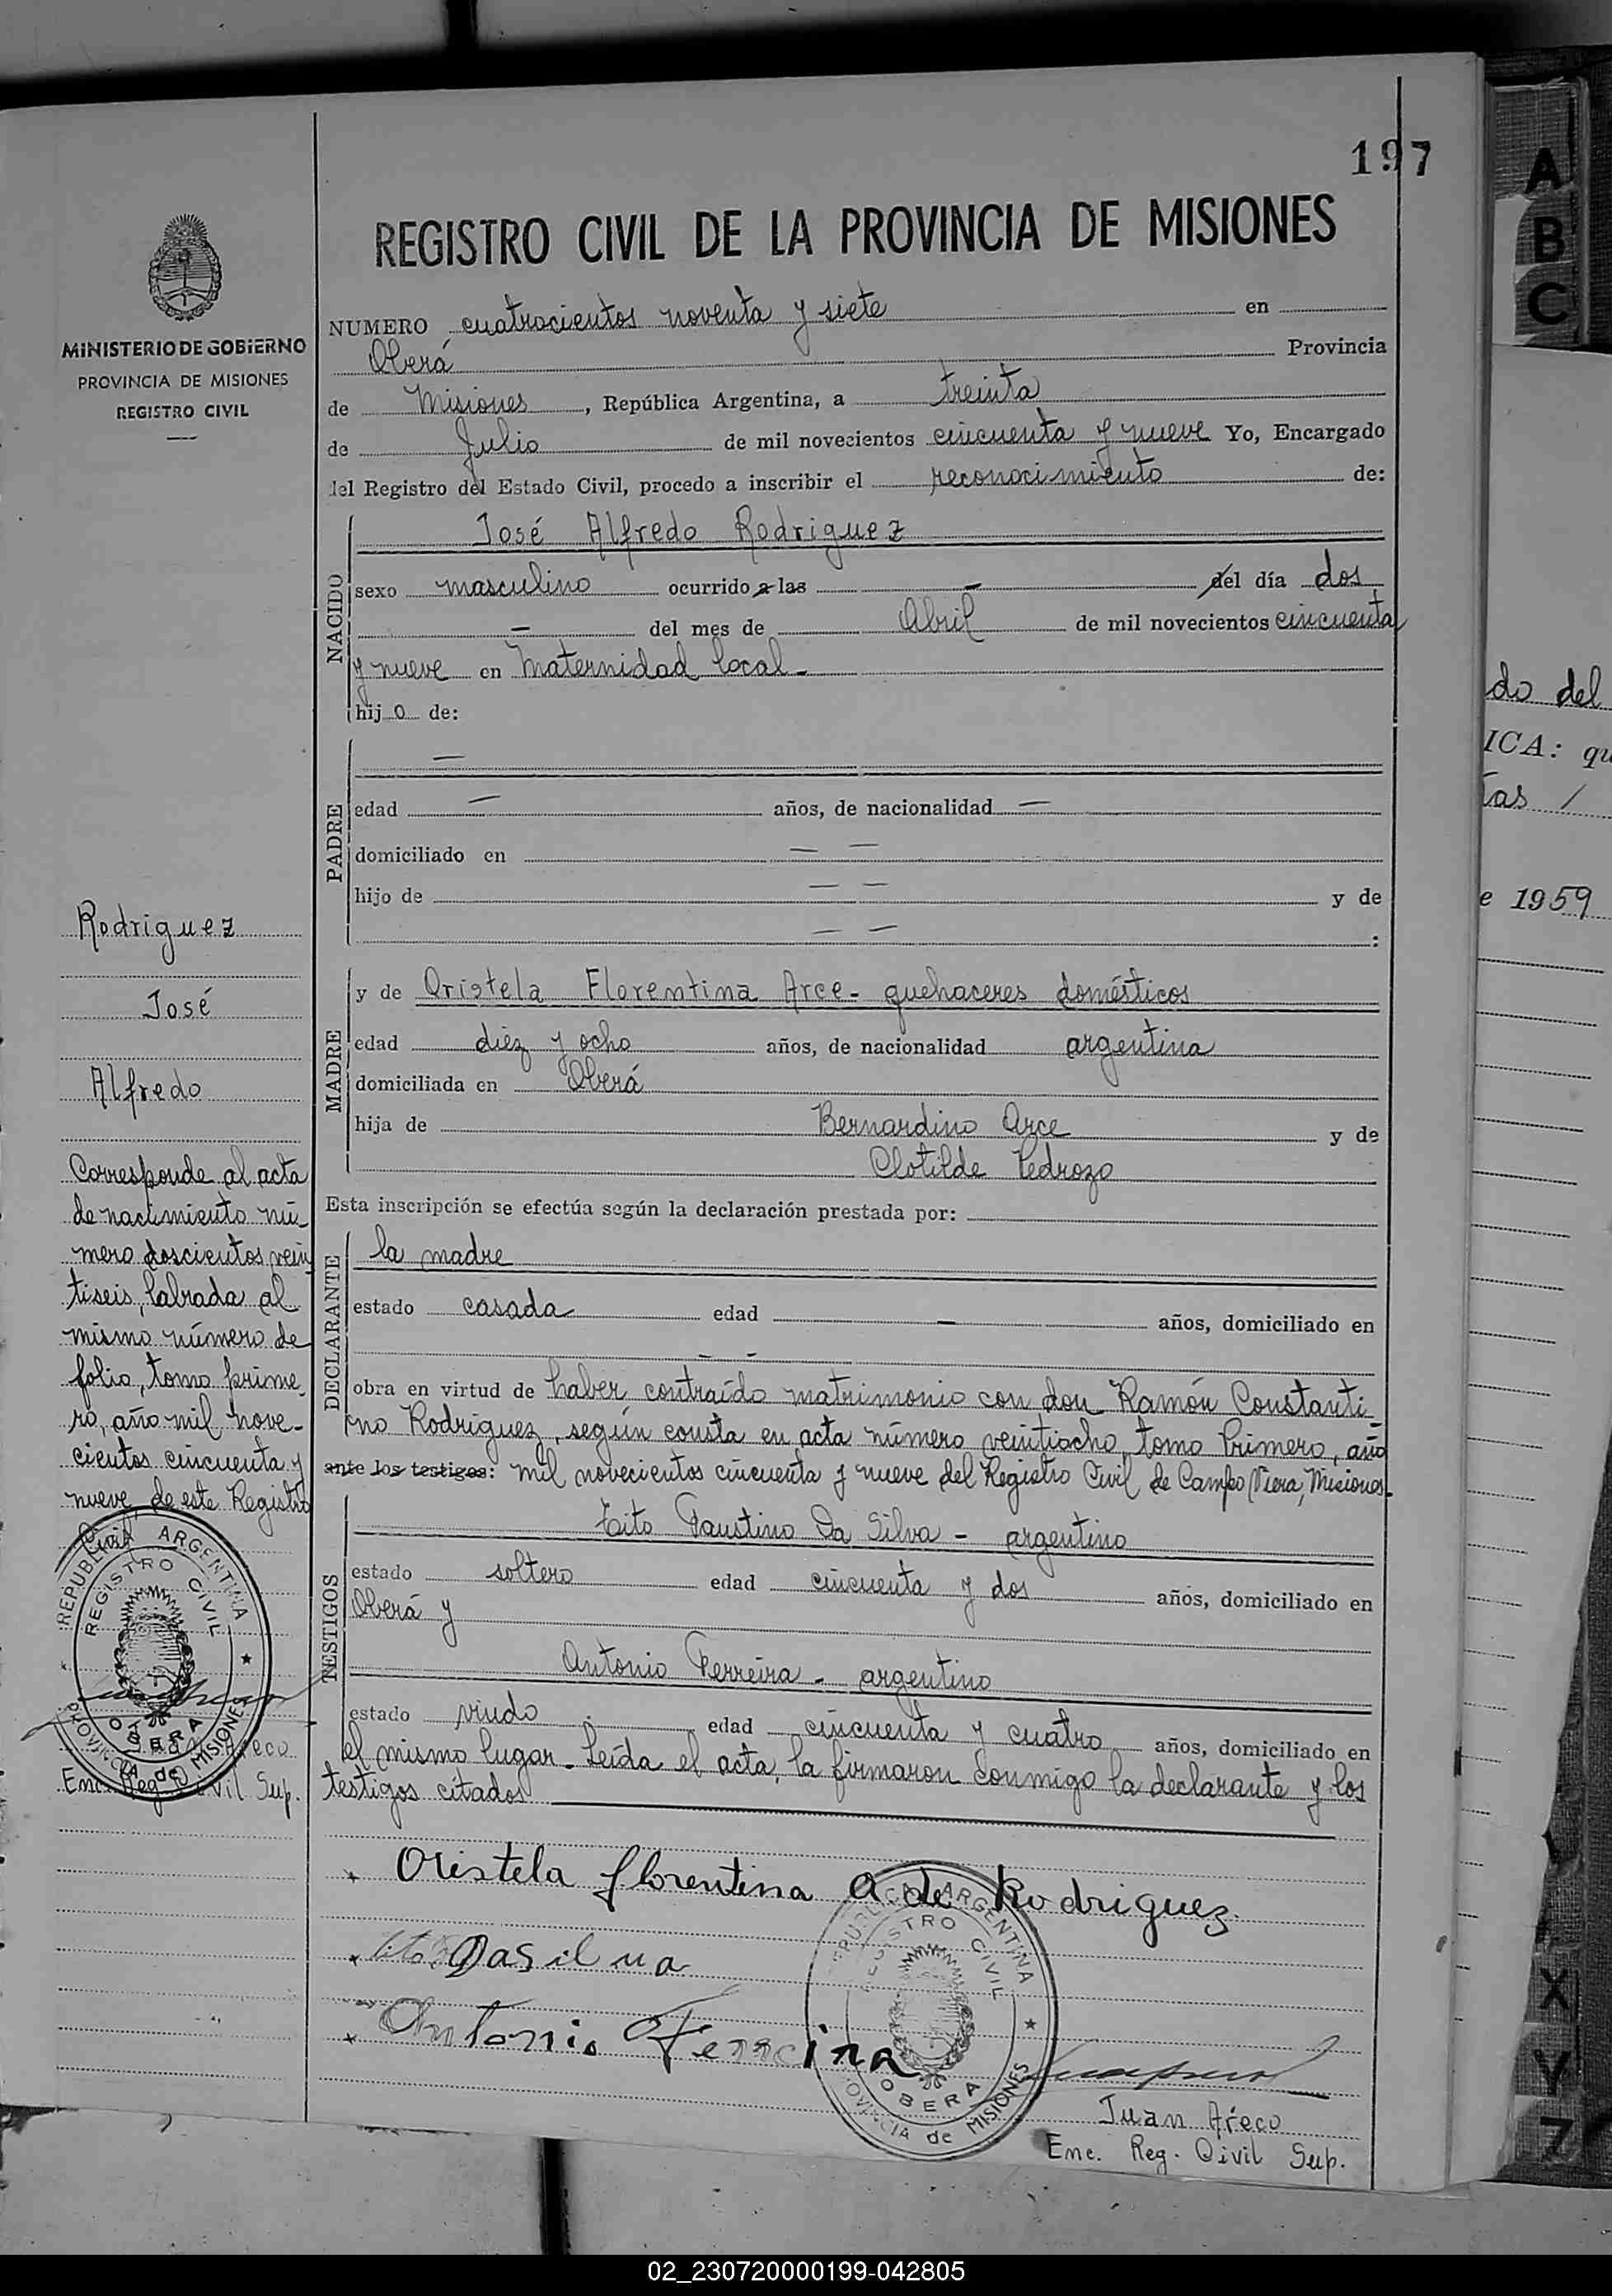 197
REGISTRO CIVIL DE LA PROVINCIA DE MISIONES
MINISTERIO DE GOBIERNO
PROVINCIA DE MISIONES
REGISTRO CIVIL
NUMERO cuatrocientos noventa y siete en
Oberá Provincia
de Misiones, República Argentina, a treinta
de Julio de mil novecientos cincuenta y nueve Yo, Encargado
del Registro del Estado Civil, procedo a inscribir el reconocimiento de:
NACIDO
José Alfredo Rodriguez
sexo masculino ocurrido a las — del día dos
— del mes de Abril de mil novecientos cincuenta
y nueve en Maternidad local-
hij o de:
PADRE
—
edad — años, de nacionalidad —
domiciliado en — —
hijo de — — y de
— — :
MADRE
y de Oristela Florentina Arce- quehaceres domésticos
edad diez y ocho años, de nacionalidad argentina
domiciliada en Oberá
hija de Bernardino Arce y de
Clotilde Pedrozo
Esta inscripción se efectúa según la declaración prestada por:
DECLARANTE
la madre
estado casada edad — años, domiciliado en
— —
obra en virtud de haber contraído matrimonio con don Ramón Constanti-
no Rodriguez, según consta en acta número veintiocho, tomo Primero, año
ante los testigos: mil novecientos cincuenta y nueve del Registro Civil de Campo Viera, Misiones-
TESTIGOS
Tito Faustino Da Silva - argentino
estado soltero edad cincuenta y dos años, domiciliado en
Oberá y
Antonio Ferreira - argentino
estado viudo edad cincuenta y cuatro años, domiciliado en
el mismo lugar. Leída el acta, la firmaron conmigo la declarante y los
testigos citados
Oristela florentina A de Rodriguez
Dasilua
Antonio Ferreira
REPUBLICA ARGENTINA
REGISTRO CIVIL
OBERA
PROVINCIA de MISIONES
Juan Areco
Enc. Reg. Civil Sup.
Rodriguez
José
Alfredo
Corresponde al acta
de nacimiento nú-
mero doscientos vein
tiseis, labrada al
mismo número de
folio, tomo prime
ro, año mil nove-
cientos cincuenta y
nueve, de este Registro
Civil
REPUBLICA ARGENTINA
REGISTRO CIVIL
OBERA
PROVINCIA de MISIONES
Areco
Enc. Reg. Civil Sup.
do del
ICA: qu
tas /
e 1959
A
B
C
X
Y
Z
02_230720000199-042805